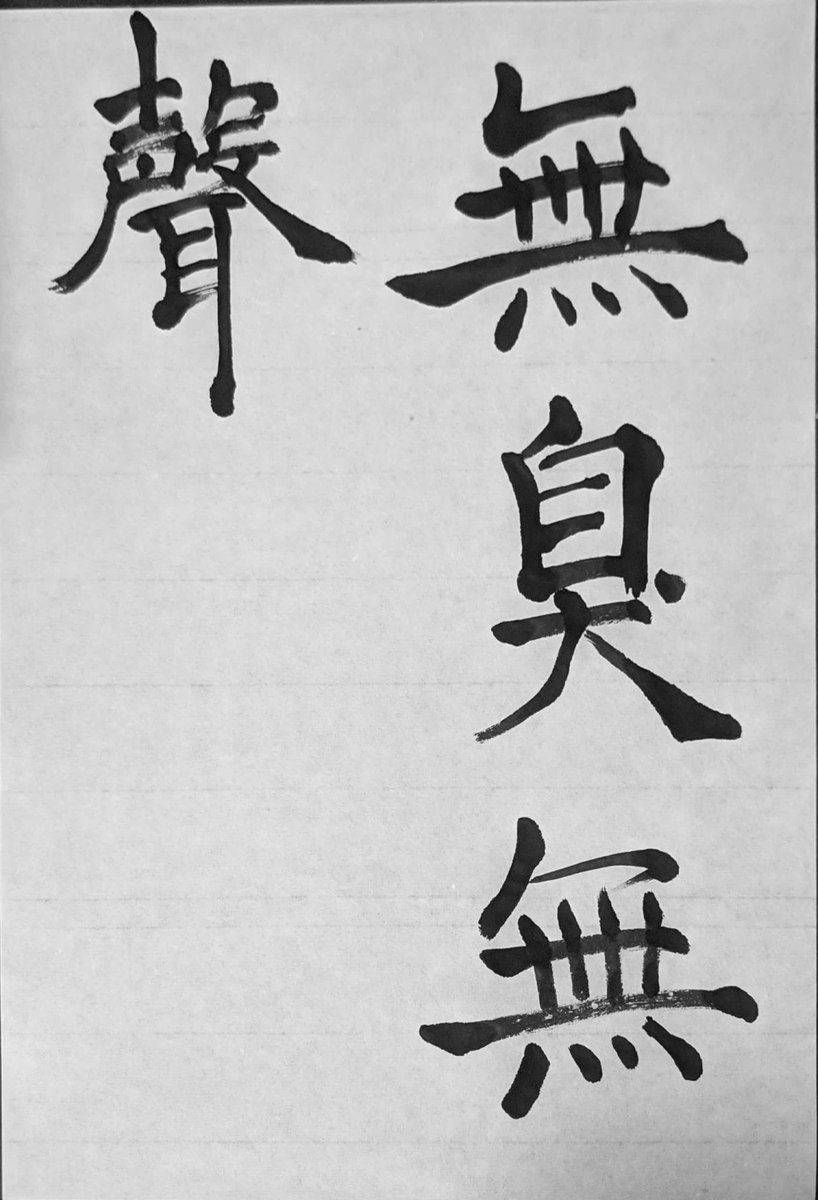 無臭無
聲